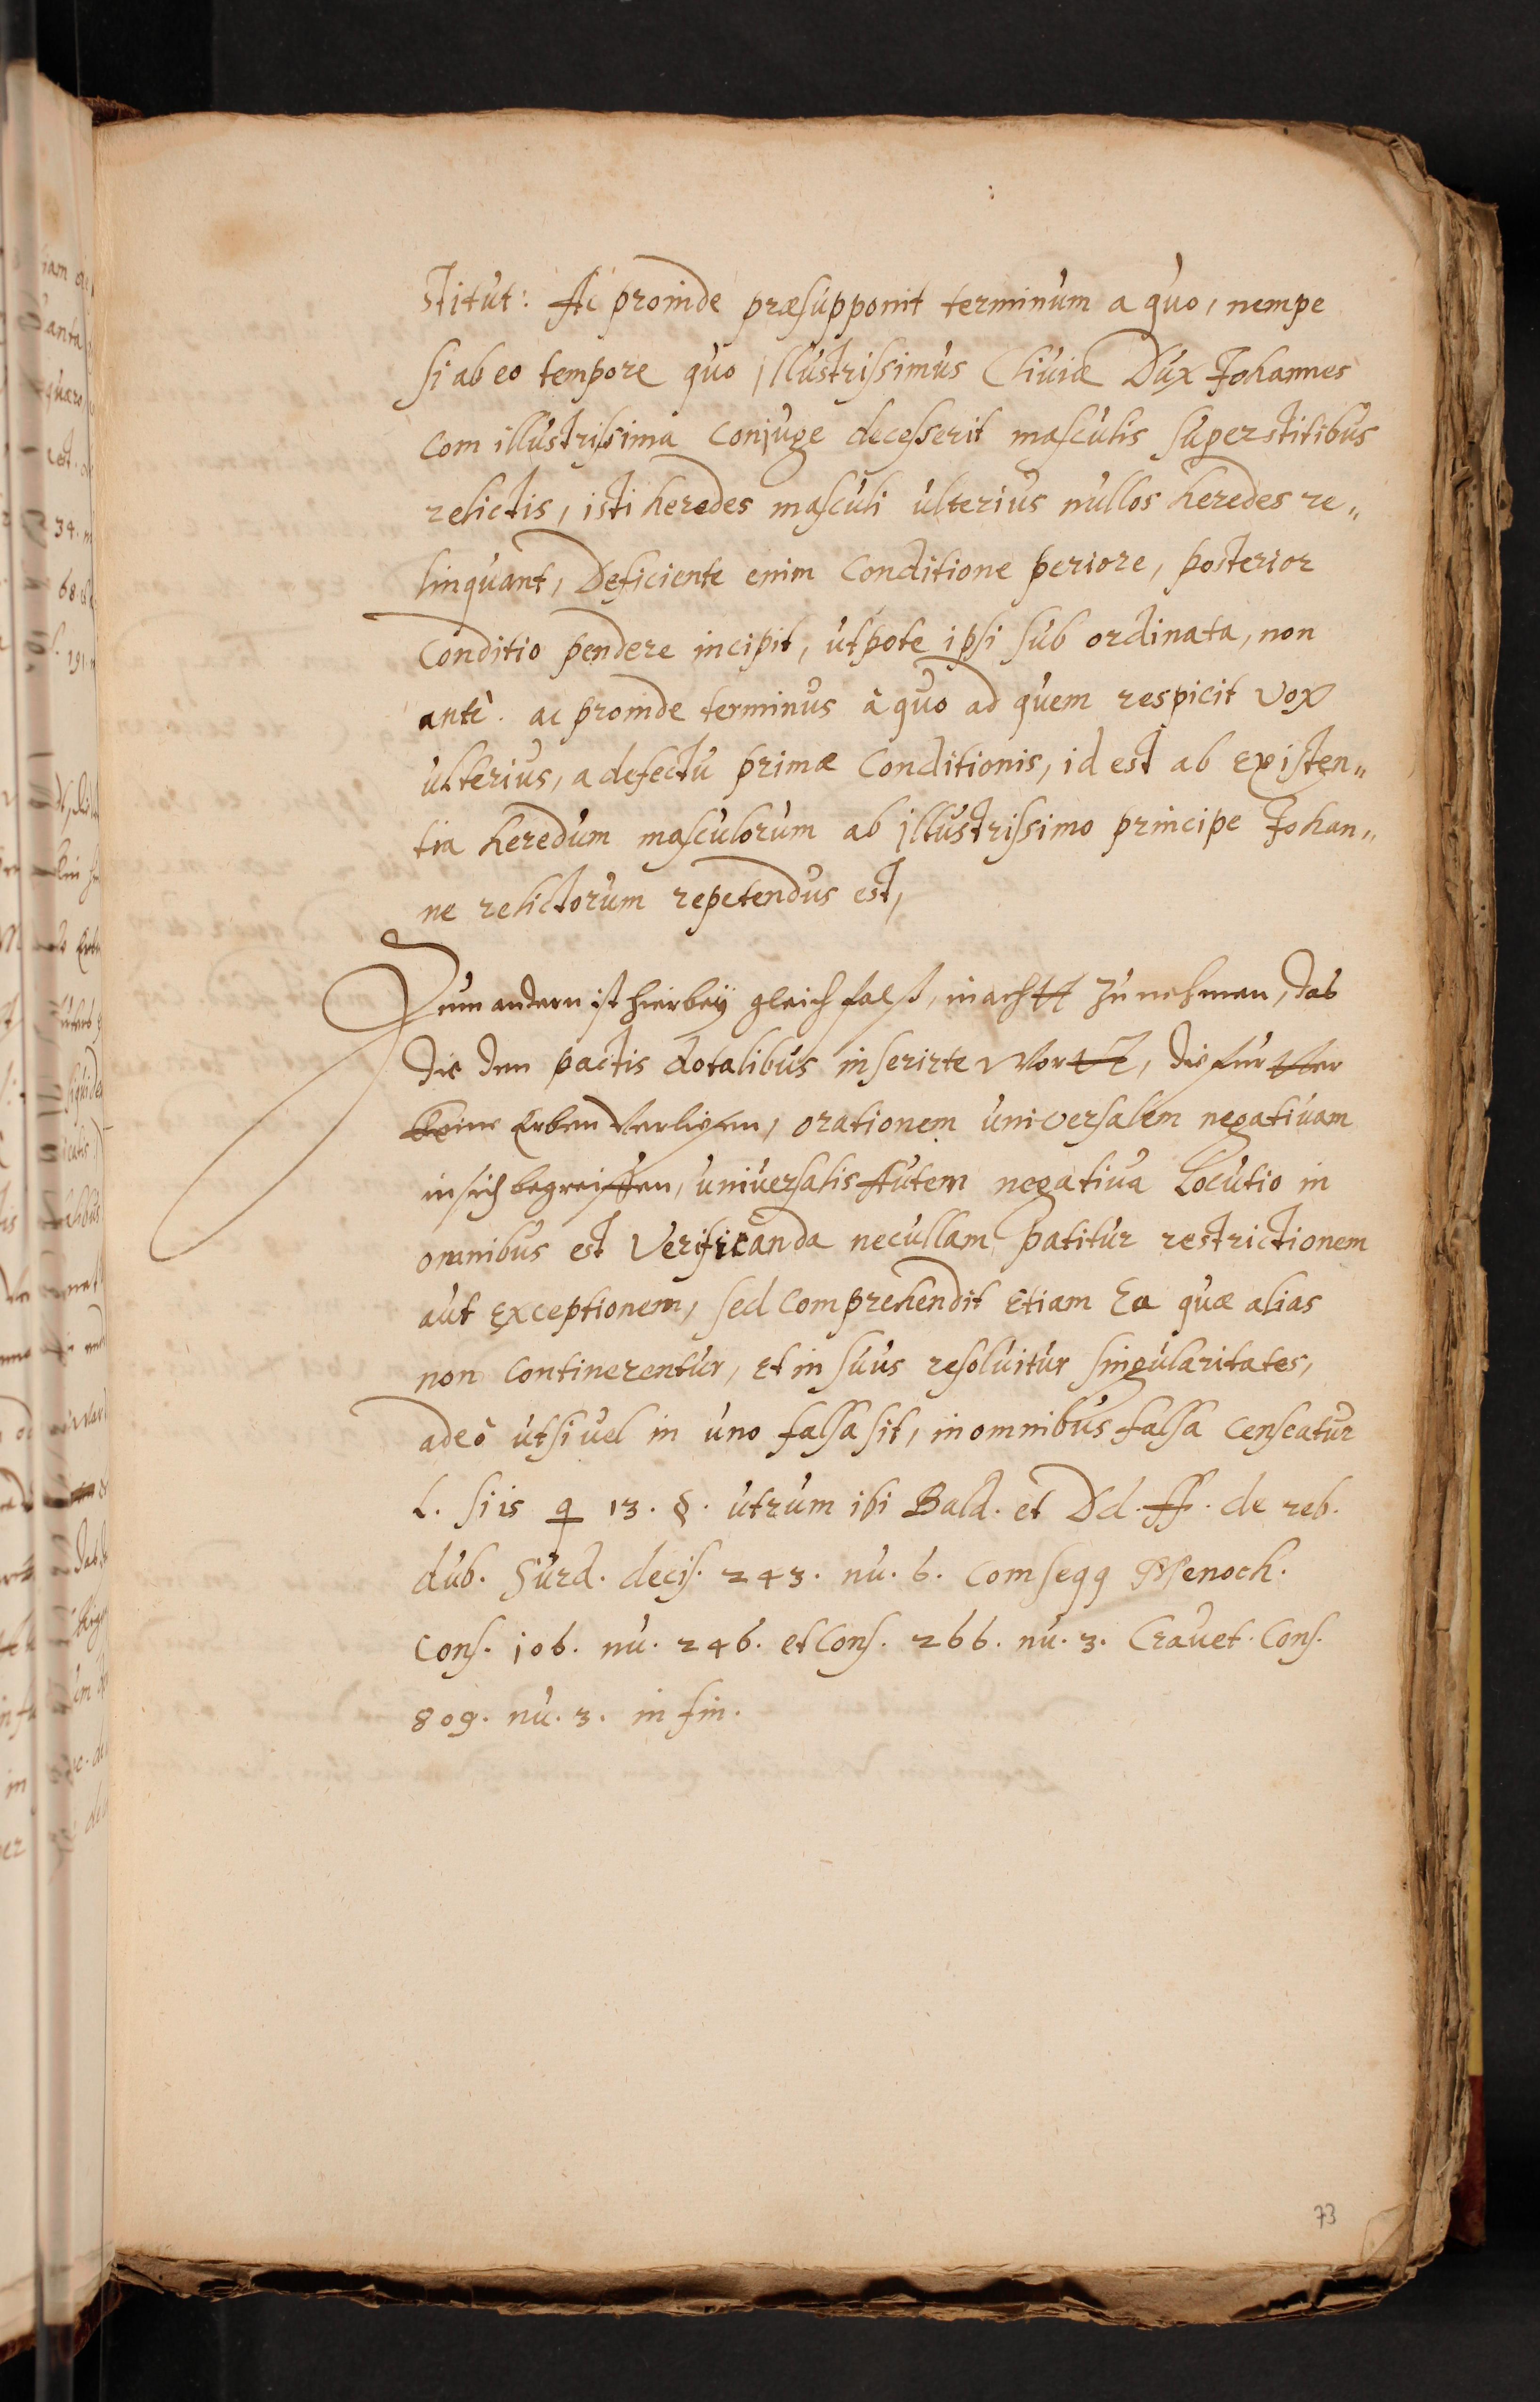 stitut: Ac proinde præsupponit terminum a quo, nempe
si ab eo tempore quo jllustrissimus Cliviæ Dux Johannes
com illustrissima conjuge decesserit masculis superstitibus
relictis, isti heredes masculi ulterius nullos heredes re„
linquant, Deficiente enim conditione periore, posterior
conditio pendere incipit, utpote ipsi sub ordinata, non
antè. ac proinde terminus à quo ad quem respicit vox
ulterius, a defectu primæ conditionis, id est ab existen„
tia heredum masculorum ab jllustrissimo principe Johan„
ne relictorum repetendus est,
Zum andern ist hierbeÿ gleich falß, in acht zu nehmen, das
die den pactis dotalibus inserirte Wortt, die furtter
keine Erben verliesen, orationem universalem negativam
in sich begreiffen, universalis Autem negativa Locutio in
omnibus est Verificanda necullam patitur restrictionem
aut exceptionem, sed comprehendit Etiam Ea quæ alias
non continerentur, Et in suus resolvitur singularitates,
adeò utsi vel in uno falsa sit, in omnibus falsa censeatur
L. si is q 13. §. utrum ibi Bald. et Dd. ff. de reb.
dub. Surd. decis. 243. nu. 6. com seqq Menoch.
Cons. 106. nu. 246. et Cons. 266. nu. 3. Cravet. Cons.
809. nu. 3. in fin.
73